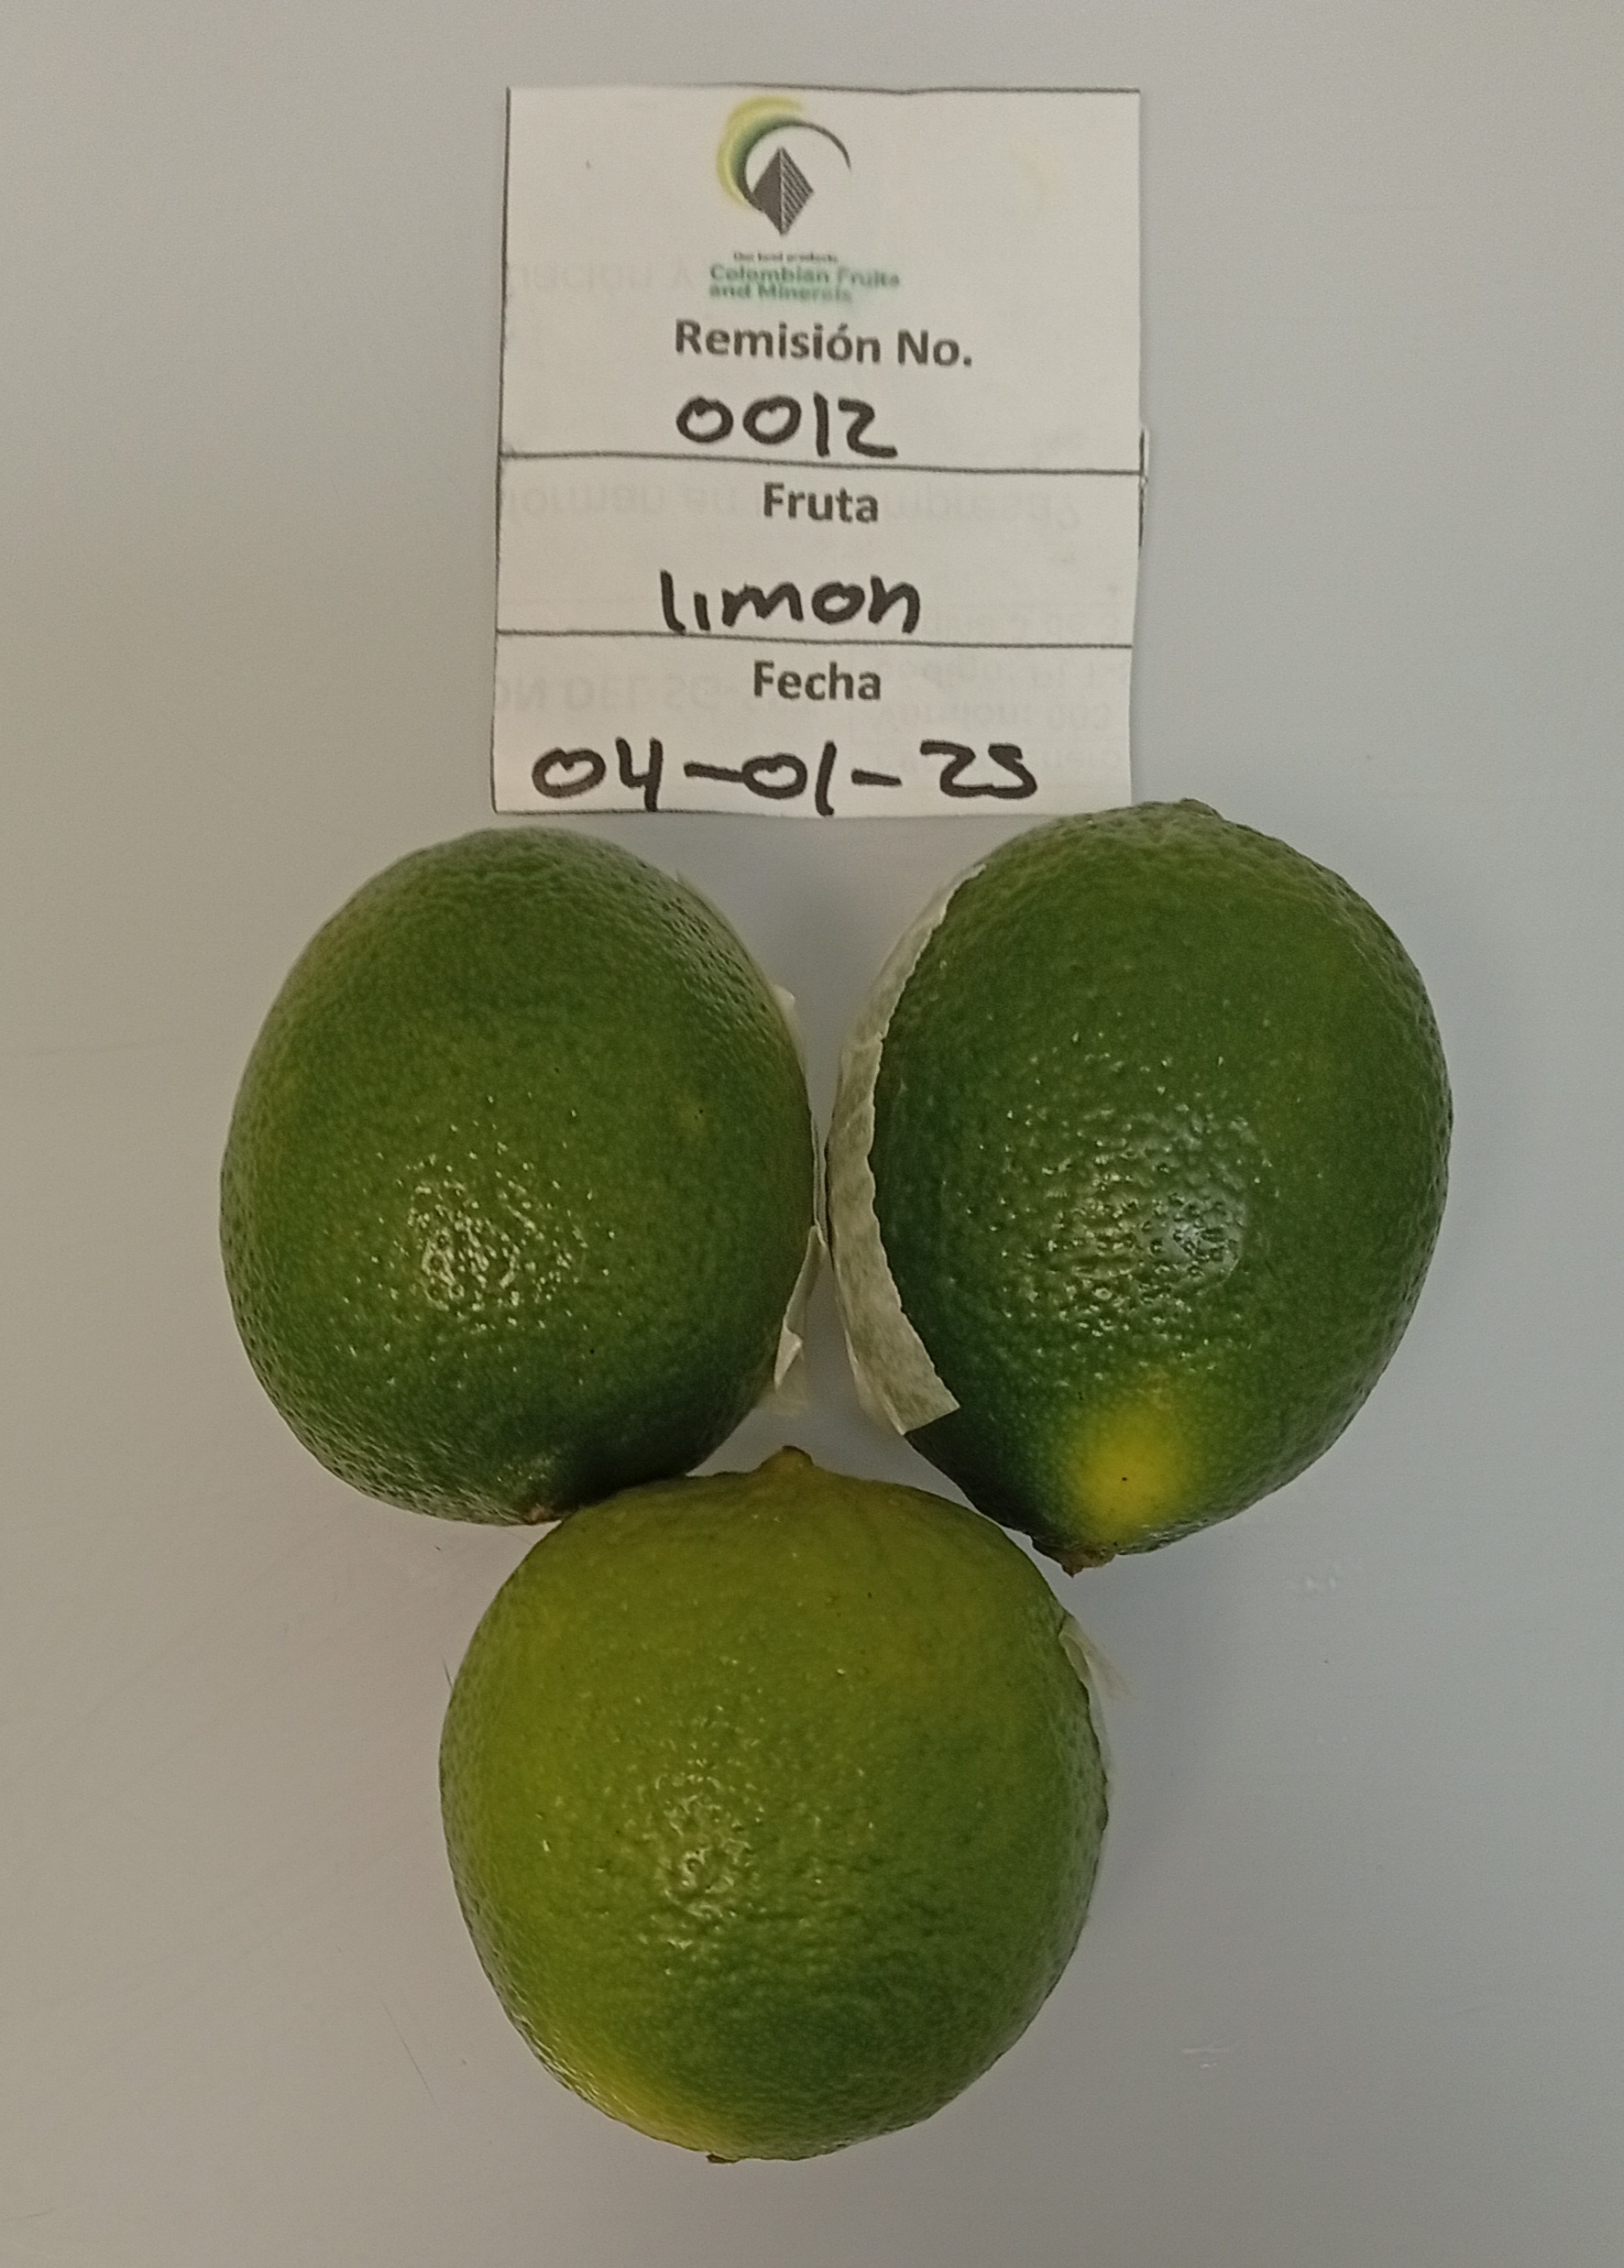 Our land products
Colombian Fruits
and Minerals
Remisión No.
0012
Fruta
limon
Fecha
04-01-25